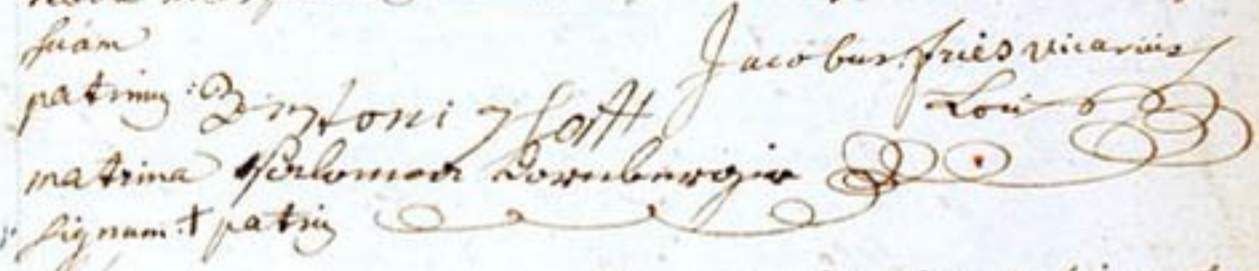 suam
Jacobus fries vicarius
patrinus: Antoni
Loci
matrina Salomea Dornbergia
signum † patris